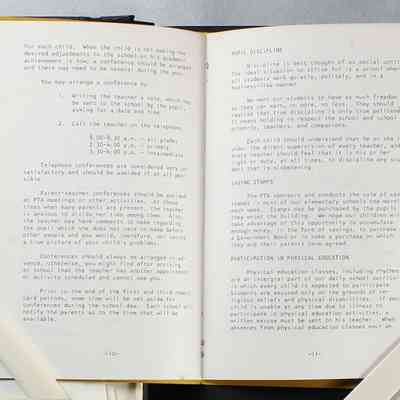 for each child. When the child is not making the
desired adjustments to the school or his academic
achievement is low, a conference should be arranged
and there may need to be several during the year.
You may arrange a conference by
1. Writing the teacher a note, which may
be sent to the school by the pupil,
asking for a date and time
2. Call the teacher on the telephone
8:00-8:30 a.m. - all grades
3:00-4:00 p.m. - primary
3:30-4:00 p.m. - intermediate
Telephone conferences are considered very un-
satisfactory and should be avoided if at all pos-
sible
Parent-teacher conferences should be avoided
at PTA meetings or other activities. At these
times when many parents are present, the teacher
is anxious to divide her time among them. Also,
the teacher may have comments to make regarding
the pupil which she does not care to make before
other people and you would, therefore, not secure
a true picture of your child's problems.
Conferences should always be arranged in ad-
vance, otherwise, you might find after arriving
at school that the teacher has another appointment
or activity scheduled and cannot see you.
Prior to the end of the first and third report
card periods, some time will be set aside for
conferences during the school day. Each school will
notify the parents as to the time that will be
available.
-10-
PUPIL DISCIPLINE
Discipline is best thought of as social control.
The ideal situation to strive for is a school where
all students work quietly, politely, and in a
business-like manner
We want our students to have as much freedom
as they can earn, no more, no less. They should
realize that true discipline is only true politeness.
It means holding in respect the school and school
property, teachers, and companions.
Each child should understand that he or she is
under the direct supervision of every teacher, and
every teacher should feel that it is his or her
right or duty, at all times, to discipline any stu-
dent that is misbehaving
SAVING STAMPS
The PTA sponsors and conducts the sale of sav-
stamps in most of our elementary schools one morning
each week. Stamps may be purchased by the pupil as
they enter the building. We hope our children will
take advantage of this opportunity to accumulate
enough money, in the form of savings, to purchase
a Government Bond or to make a purchase on which
they and their parents have agreed.
PARTICIPATION IN PHYSICAL EDUCATION
Physical education classes, including rhythms
are an intergral part of our daily school curriculum
in which every child is expected to participate
Students are excused only on the grounds of re-
ligious beliefs and physical disabilities. If your
child is unable at any time due to illness to
participate in physical education activities, a
written excuse must be sent to his teacher. When
absences from physical education classes must
-11-